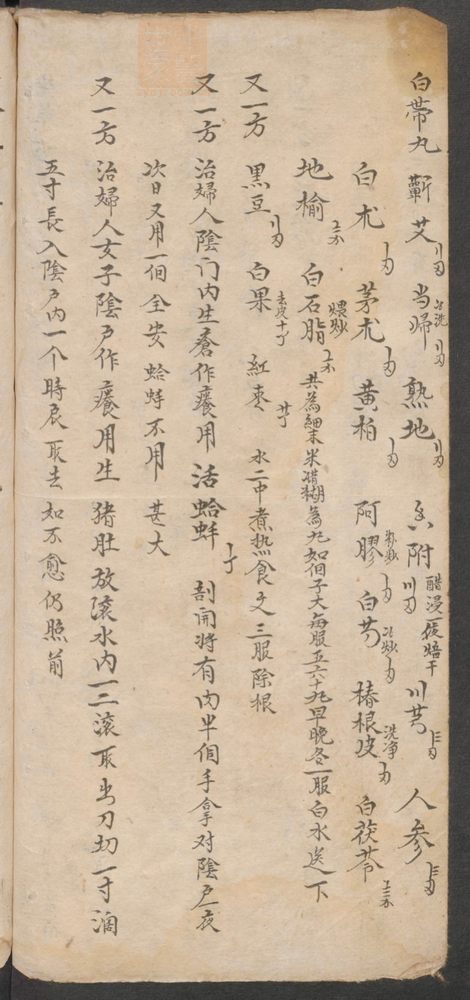 白带丸 蘄艾 当归酒洗 熟地 香附醋浸一夜焙干 川芎 人参
白朮 茅朮 黄柏 阿膠 白芍酒炒 椿根皮洗净 白茯苓
地榆 白石脂煨炒 共為細末米醋糊為丸如梧子大每服五六十丸早晚各一服白水送下
又一方 黑豆 白果去皮十个 紅枣 水二中煮热食之三服除根
又一方 治婦人陰门内生瘡作癢用活蛤蚌 剖開将有肉半個手拿对陰戸一夜
次日又用一個全安蛤蚌不用甚大
又一方 治婦人女子陰戸作癢用生猪肚放滚水内一二滚取出刀切一寸濶
五寸長入陰戸内一个時辰取去如不愈仍照前